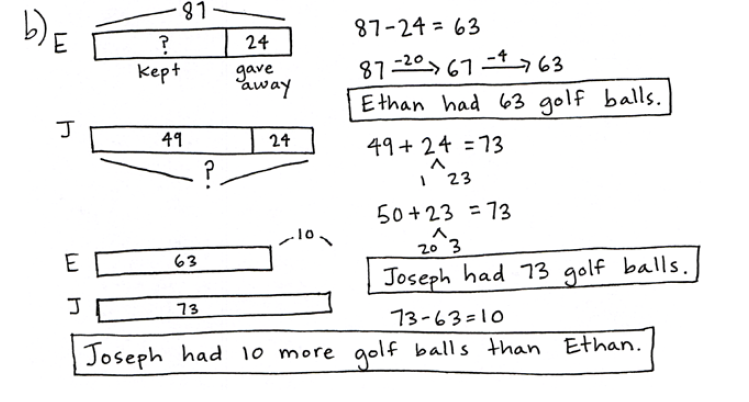 b)
87
E ? 24
kept gave away
87-24 = 63
87 -20→ 67 -4→ 63
Ethan had 63 golf balls.
J 49 24
?
49 + 24 = 73
1 23
50 + 23 = 73
20 3
Joseph had 73 golf balls.
10
E 63
J 73
73-63=10
Joseph had 10 more golf balls than Ethan.